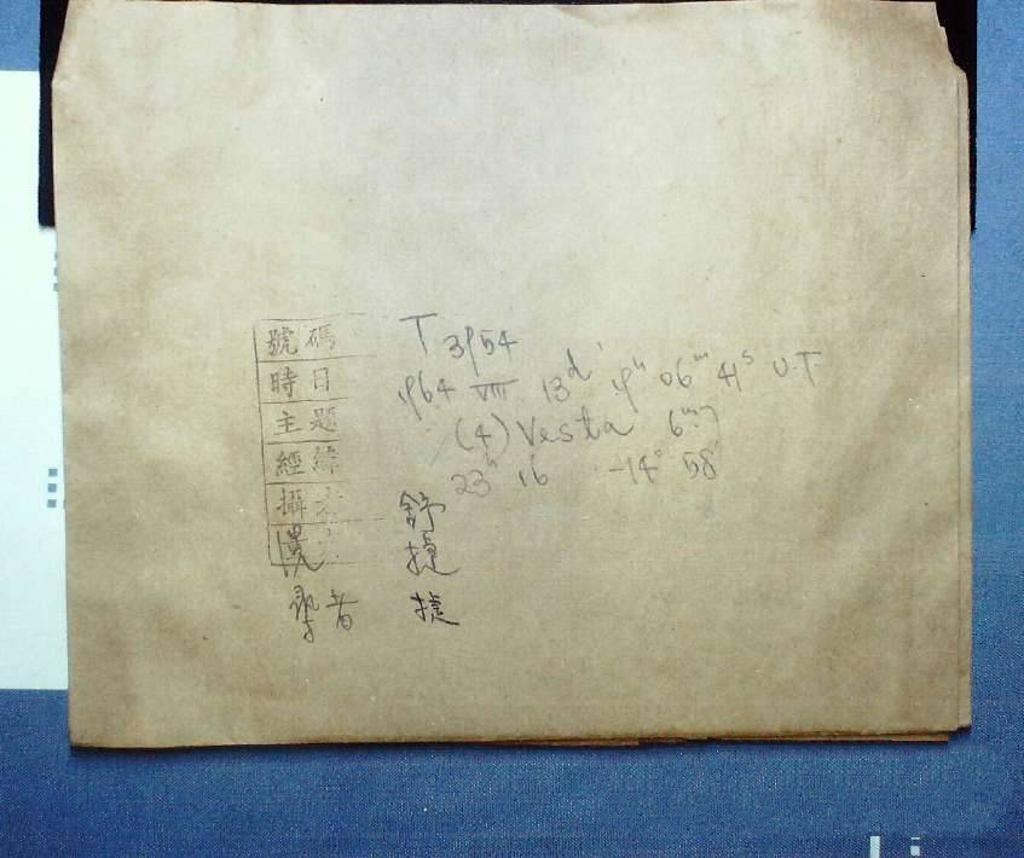 號碼 T 3954
時日 1964 VIII 13d 19h 06m 41s U.T
主題 (4) Vesta 6m.7
經緯 23h 16 -14° 58'
攝 舒
捷
者 捷